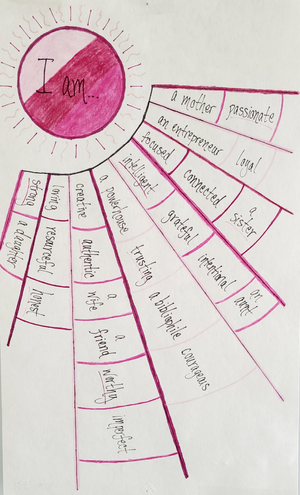 I am...
a mother
passionate
an entrepreneur
loyal
focused
connected
a
sister
intelligent
grateful
intentional
an
aunt
a powerhouse
trusting
a bibliophile
courageous
creative
authentic
a
wife
a
friend
worthy
imperfect
loving
resourceful
honest
strong
a daughter